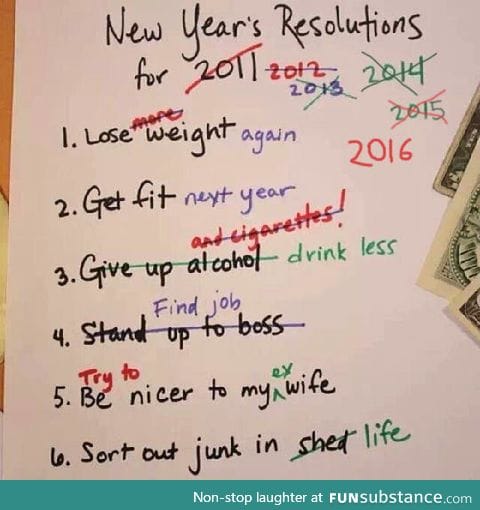 New Year's Resolutions
for 2011 2012 2014
2013 2015
2016
more
1. Lose weight again
2. Get fit next year
and cigarettes!
3. Give up alcohol drink less
Find job
4. Stand up to boss
Try to ex
5. Be nicer to my wife
6. Sort out junk in shed life
Non-stop laughter at FUNsubstance.com